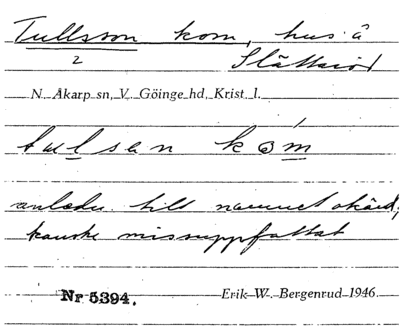 Tullsson kom, hus å
2 Slättaröd
N. Åkarp sn, V. Göinge hd, Krist. l.
tulsen kom
anledn till namnet okänd,
kanske missuppfattat
Nr 5394. Erik W. Bergenrud 1946.